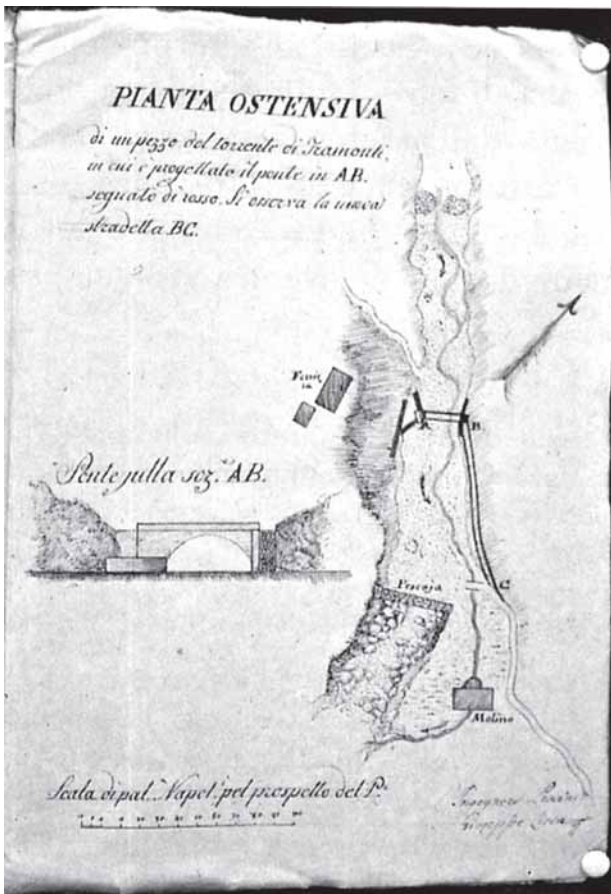 PIANTA OSTENSIVA
di un pezzo del torrente di Tramonti,
in cui è progettato il ponte in AB.
segnato di rosso. Si osserva la nuova
stradella BC.
A
B
Ponte sulla sez.ne AB.
C
Pescaja
Molino
Scala di pal.mi Napol.ni pel prospetto del P.e
Ingegnere
Giuseppe